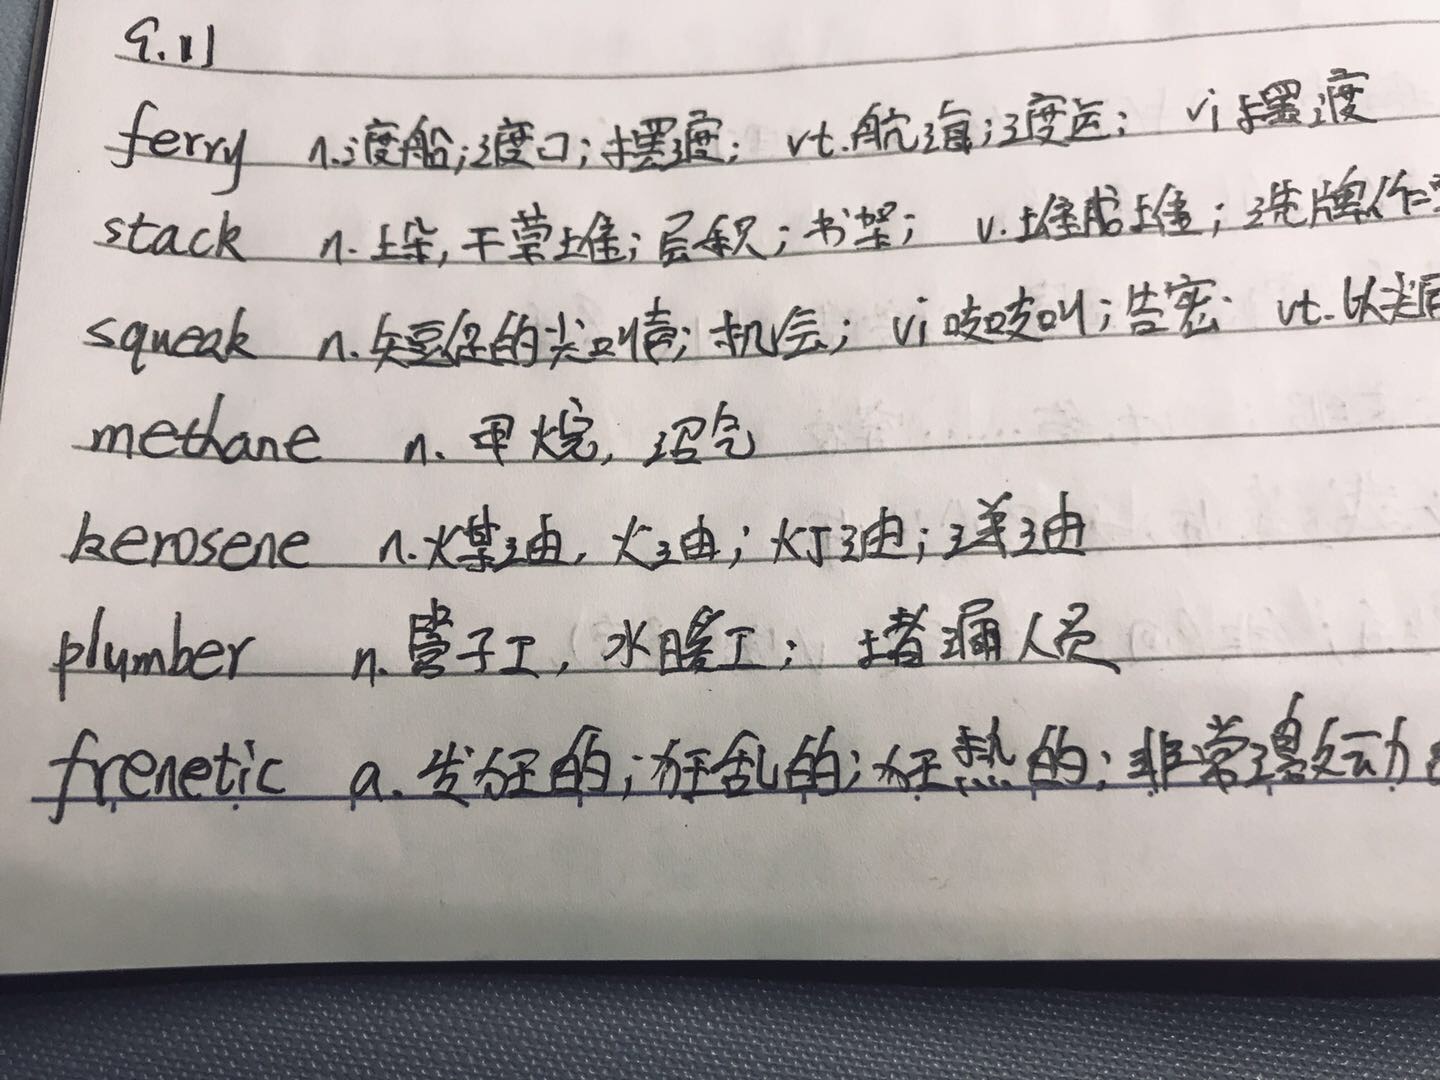 9.11
ferry n.渡船;渡口;摆渡; vt.航海;渡运; vi摆渡
stack n.垛,干草堆;层积;书架; v.堆成堆;洗牌作
squeak n.短促的尖叫声;机会; vi吱吱叫;告密 vt.以尖
methane n.甲烷,沼气
kerosene n.煤油,火油;灯油;洋油
plumber n.管子工,水暖工;堵漏人员
frenetic a.发狂的;狂乱的;狂热的;非常激动